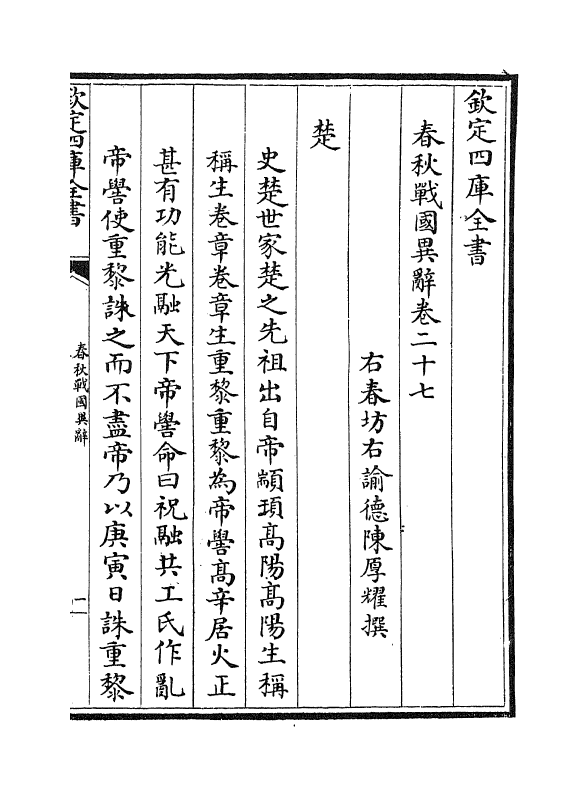 欽定四庫全書
春秋戰國異辭卷二十七
右春坊右諭德陳厚耀撰
楚
史楚世家楚之先祖出自帝顓頊髙陽髙陽生稱
稱生卷章卷章生重黎重黎為帝嚳髙辛居火正
甚有功能光融天下帝嚳命曰祝融共工氏作亂
帝嚳使重黎誅之而不盡帝乃以庚寅日誅重黎
欽定四庫全書
春秋戰國異辭
一